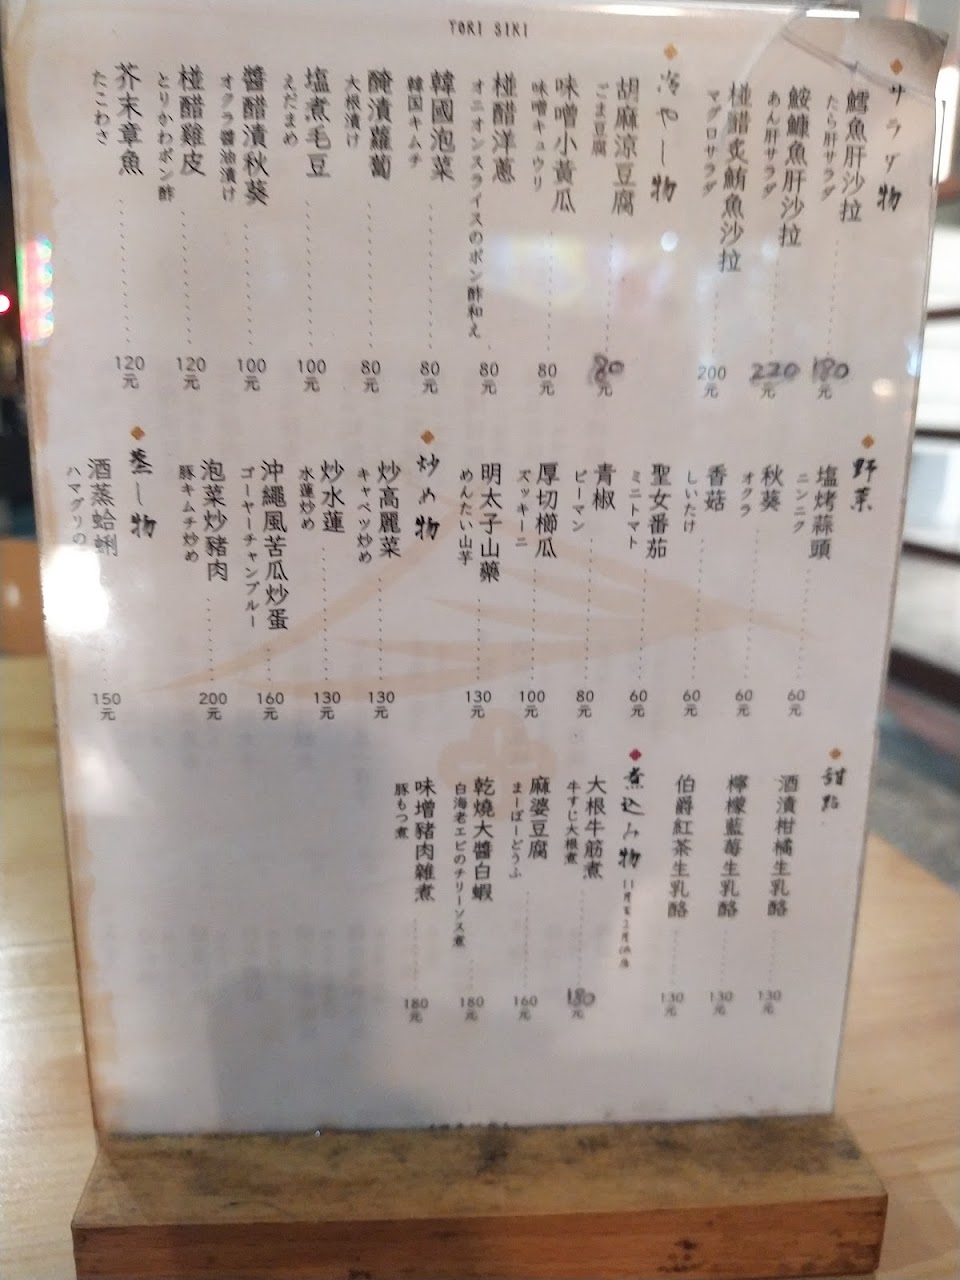 YORI SIKI
サラダ物
鱈魚肝沙拉
たら肝サラダ
180元
鮟鱇魚肝沙拉
あん肝サラダ
220元
椪醋炙鮪魚沙拉
マグロサラダ
200元
冷やし物
胡麻涼豆腐
ごま豆腐
80元
味噌小黃瓜
味噌キュウリ
80元
椪醋洋蔥
オニオンスライスのポン酢和え
80元
韓國泡菜
韓国キムチ
80元
醃漬蘿蔔
大根漬け
80元
塩煮毛豆
えだまめ
100元
醬醋漬秋葵
オクラ醤油漬け
100元
椪醋雞皮
とりかわポン酢
120元
芥末章魚
たこわさ
120元
野菜
塩烤蒜頭
ニンニク
60元
秋葵
オクラ
60元
香菇
しいたけ
60元
聖女番茄
ミニトマト
60元
青椒
ピーマン
80元
厚切櫛瓜
ズッキーニ
100元
明太子山藥
めんたい山芋
130元
炒め物
炒高麗菜
キャベツ炒め
130元
炒水蓮
水蓮炒め
130元
沖繩風苦瓜炒蛋
ゴーヤーチャンプルー
160元
泡菜炒豬肉
豚キムチ炒め
200元
蒸し物
酒蒸蛤蜊
ハマグリの
150元
甜點
酒漬柑橘生乳酪
130元
檸檬藍莓生乳酪
130元
伯爵紅茶生乳酪
130元
煮込み物
大根牛筋煮
牛すじ大根煮
180元
麻婆豆腐
まーぼーどうふ
160元
乾燒大醬白蝦
白海老エビのチリーソス煮
180元
味增豬肉雜煮
豚もつ煮
180元